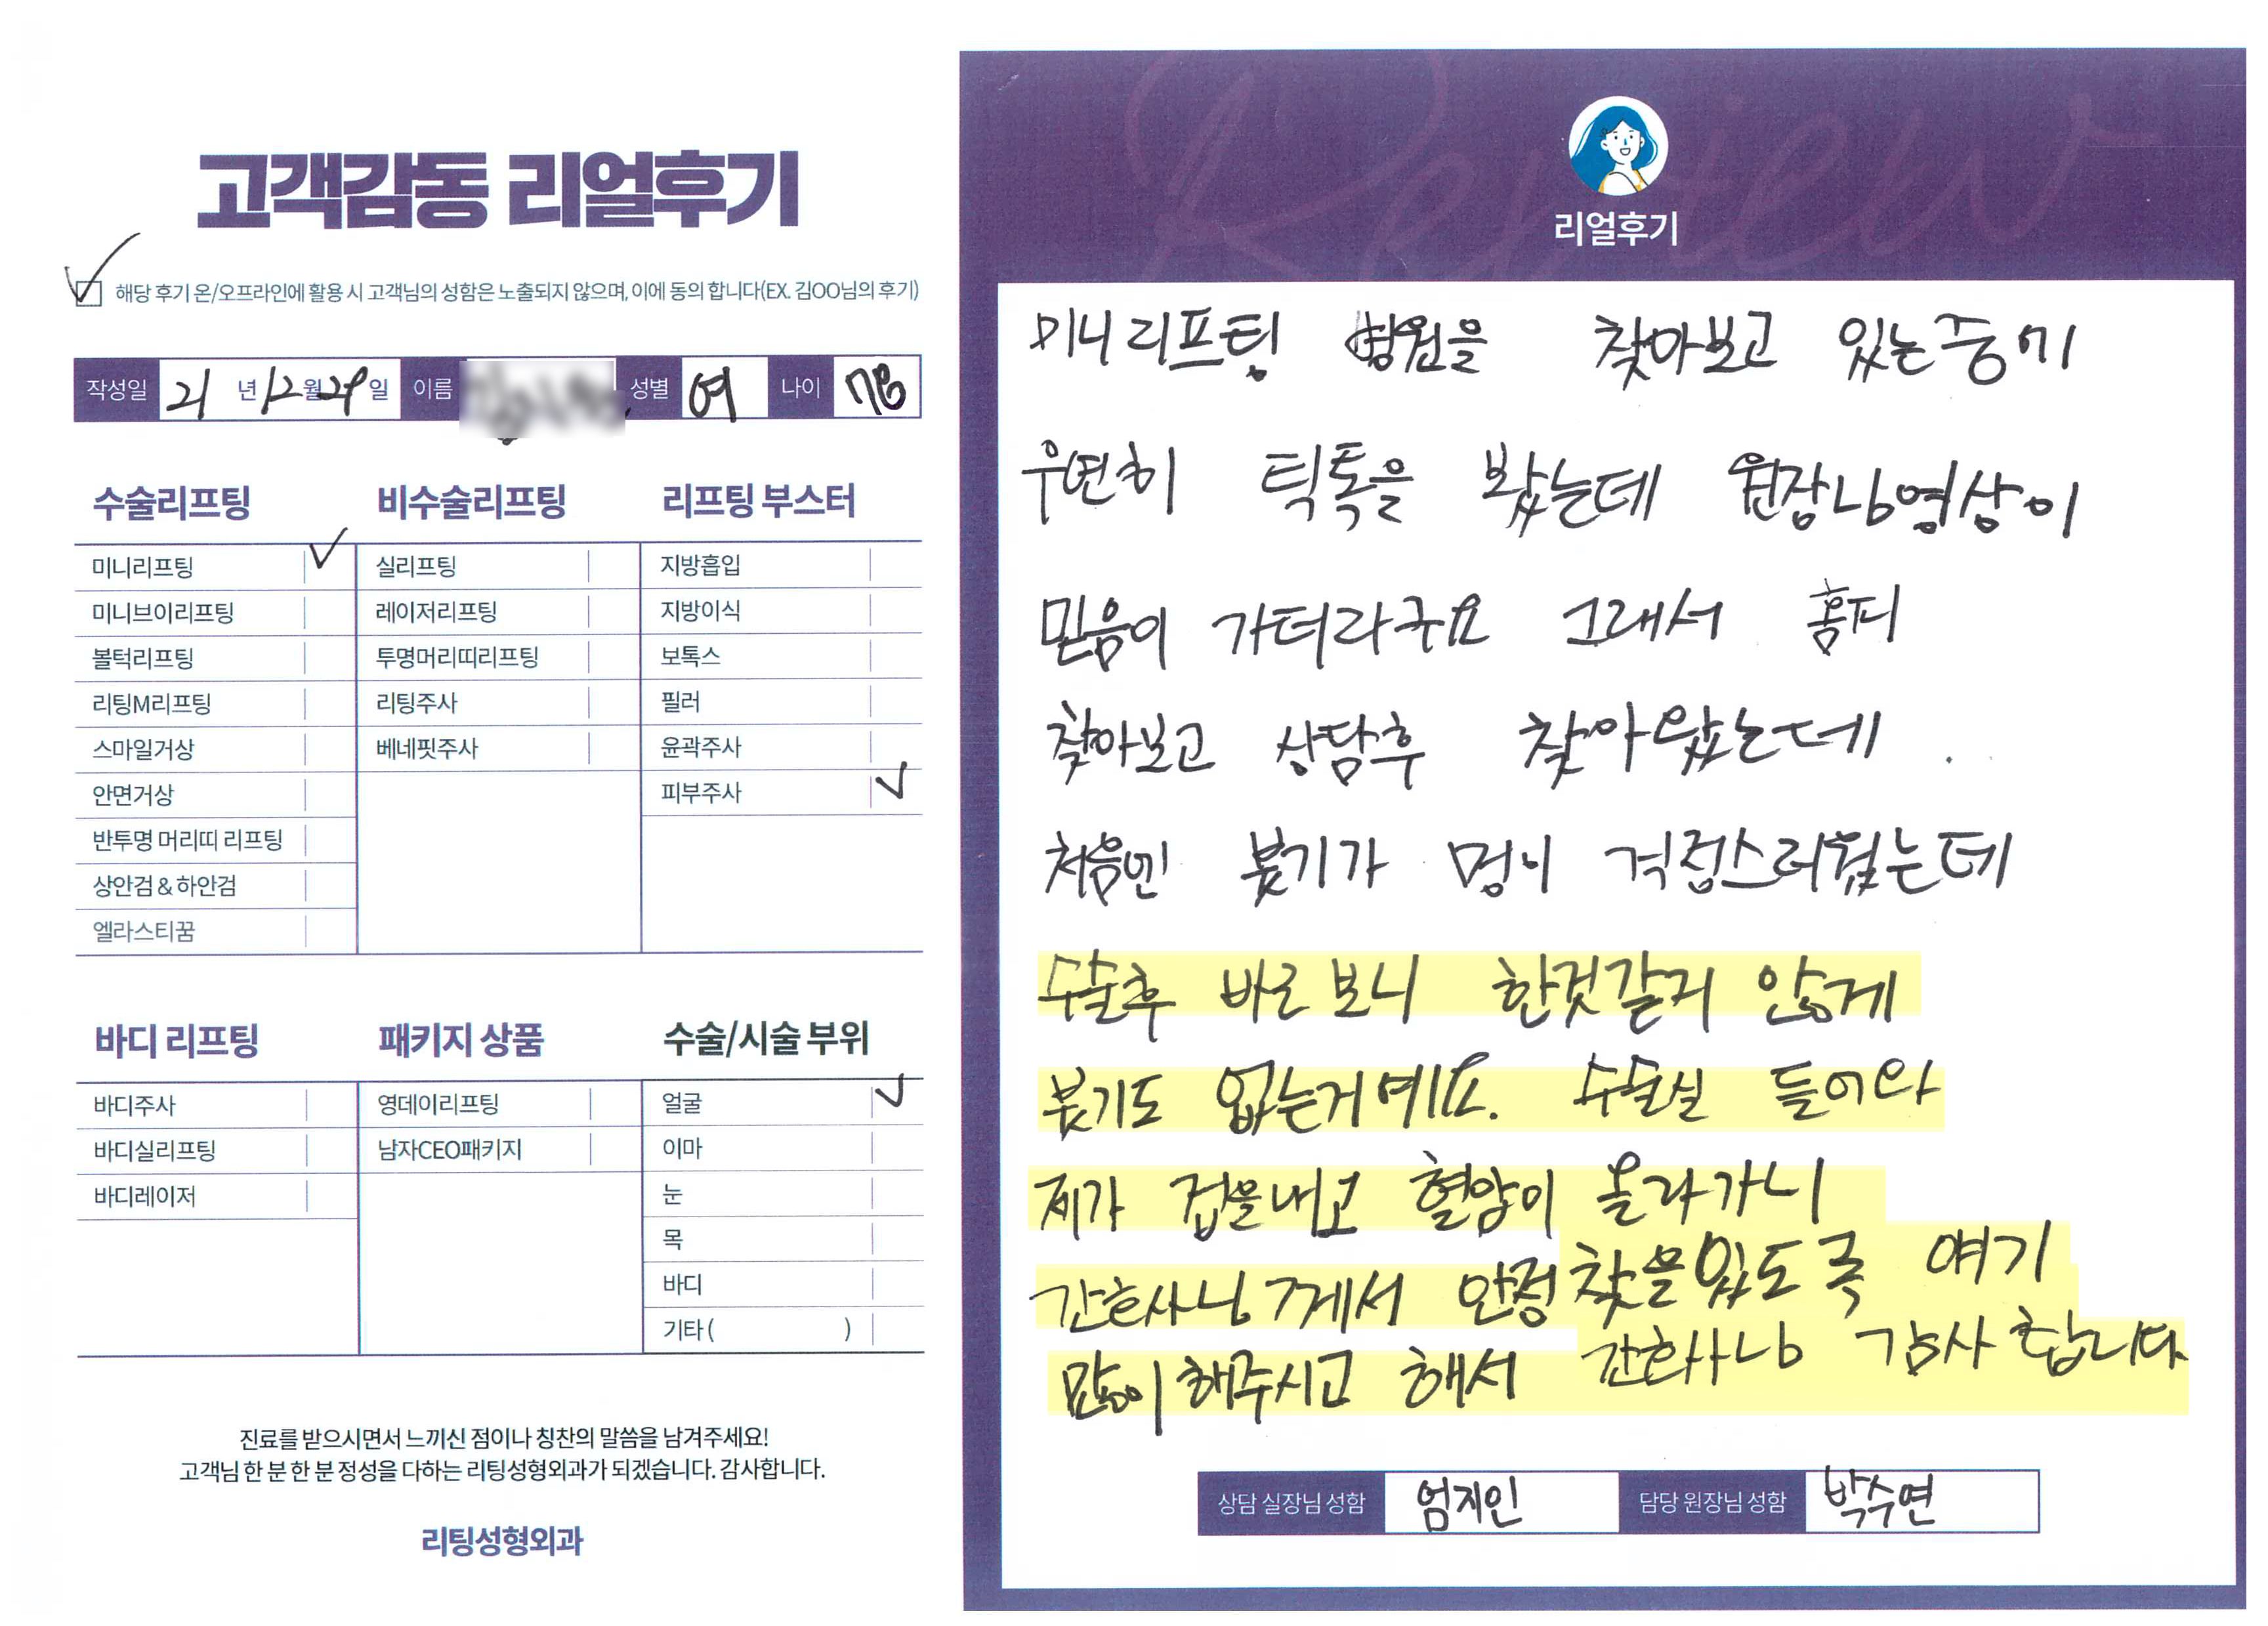 고객감동 리얼후기
해당 후기 온/오프라인에 활용 시 고객님의 성함은 노출되지 않으며, 이에 동의 합니다(EX. 김OO님의 후기)
작성일 21 년 12 월 29 일 이름 성별 여 나이
수술리프팅
미니리프팅
미니브이리프팅
볼턱리프팅
리팅M리프팅
스마일거상
안면거상
반투명 머리띠 리프팅
상안검&하안검
엘라스티꿈
비수술리프팅
실리프팅
레이저리프팅
투명머리띠리프팅
리팅주사
베네핏주사
리프팅 부스터
지방흡입
지방이식
보톡스
필러
윤곽주사
피부주사
바디 리프팅
바디주사
바디실리프팅
바디레이저
패키지 상품
영데이리프팅
남자CEO패키지
수술/시술 부위
얼굴
이마
눈
목
바디
기타 ( )
진료를 받으시면서 느끼신 점이나 칭찬의 말씀을 남겨주세요!
고객님 한 분 한 분 정성을 다하는 리팅성형외과가 되겠습니다. 감사합니다.
리팅성형외과
Review
리얼후기
미니리프팅 병원을 찾아보고 있는중에
우연히 틱톡을 봤는데 원장님영상이
믿음이 가더라구요 그래서 홈피
찾아보고 상담후 찾아왔는데
처음엔 붓기가 멍이 걱정스러웠는데
수술후 바로보니 한것같지 않게
붓기도 없는거예요. 수술실 들어와
제가 겁을내고 혈압이 올라가니
간호사님께서 안정찾을있도록 얘기
많이해주시고 해서 간호사님 감사합니다
상담 실장님 성함 엄지인 담당 원장님 성함 박수연